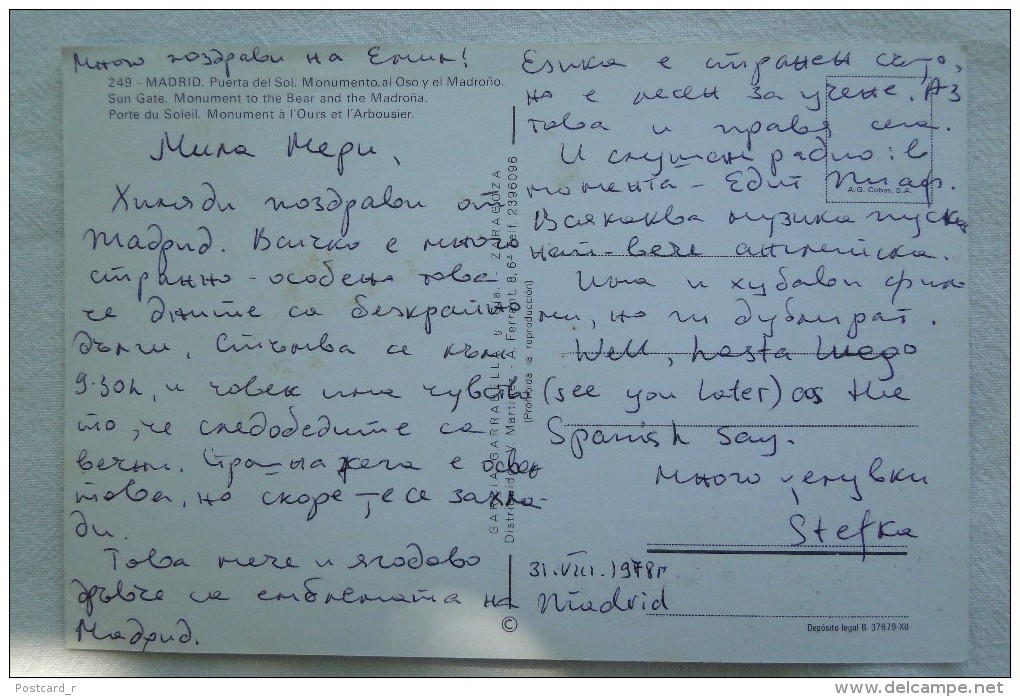 Много поздрави на Емил!
249 - MADRID. Puerta del Sol. Monumento al Oso y el Madroño.
Sun Gate. Monument to the Bear and the Madroña.
Porte du Soleil. Monument à l'Ours et l'Arbousier.
Мила Мери,
Хиляди поздрави от
Мадрид. Всичко е много
странно - особено това
че дните са безкрайно
дълги. Стъмва се към
9.30h, и човек има чувств-
то, че следобедите са
вечни. Страшна жега е освен
това, но скоро ще се захла-
ди.
Това мече и ягодово
дръвче са емблемата на
Мадрид.
GARCIA GARRABELLA y Cía. - ZARAGOZA
Distribuidor: V. Martínez - A. Ferrant, 8, 6ª Telf. 2396096
(Prohibida la reproducción)
©
Езика е странен също,
но е лесен за учене. Аз
това и правя сега.
И слушам радио: в
момента - Едит Пиаф.
Всякаква музика пускат
най-вече английска.
Има и хубави фил-
ми, но ги дублират.
Well, hasta luego
(see you later) as the
Spanish say.
Много целувки
Stefka
31.VIII.1978г
Madrid
A.G. Cobas, S.A.
Depósito legal B. 37679-XII
Postcard_r
www.delcampe.net